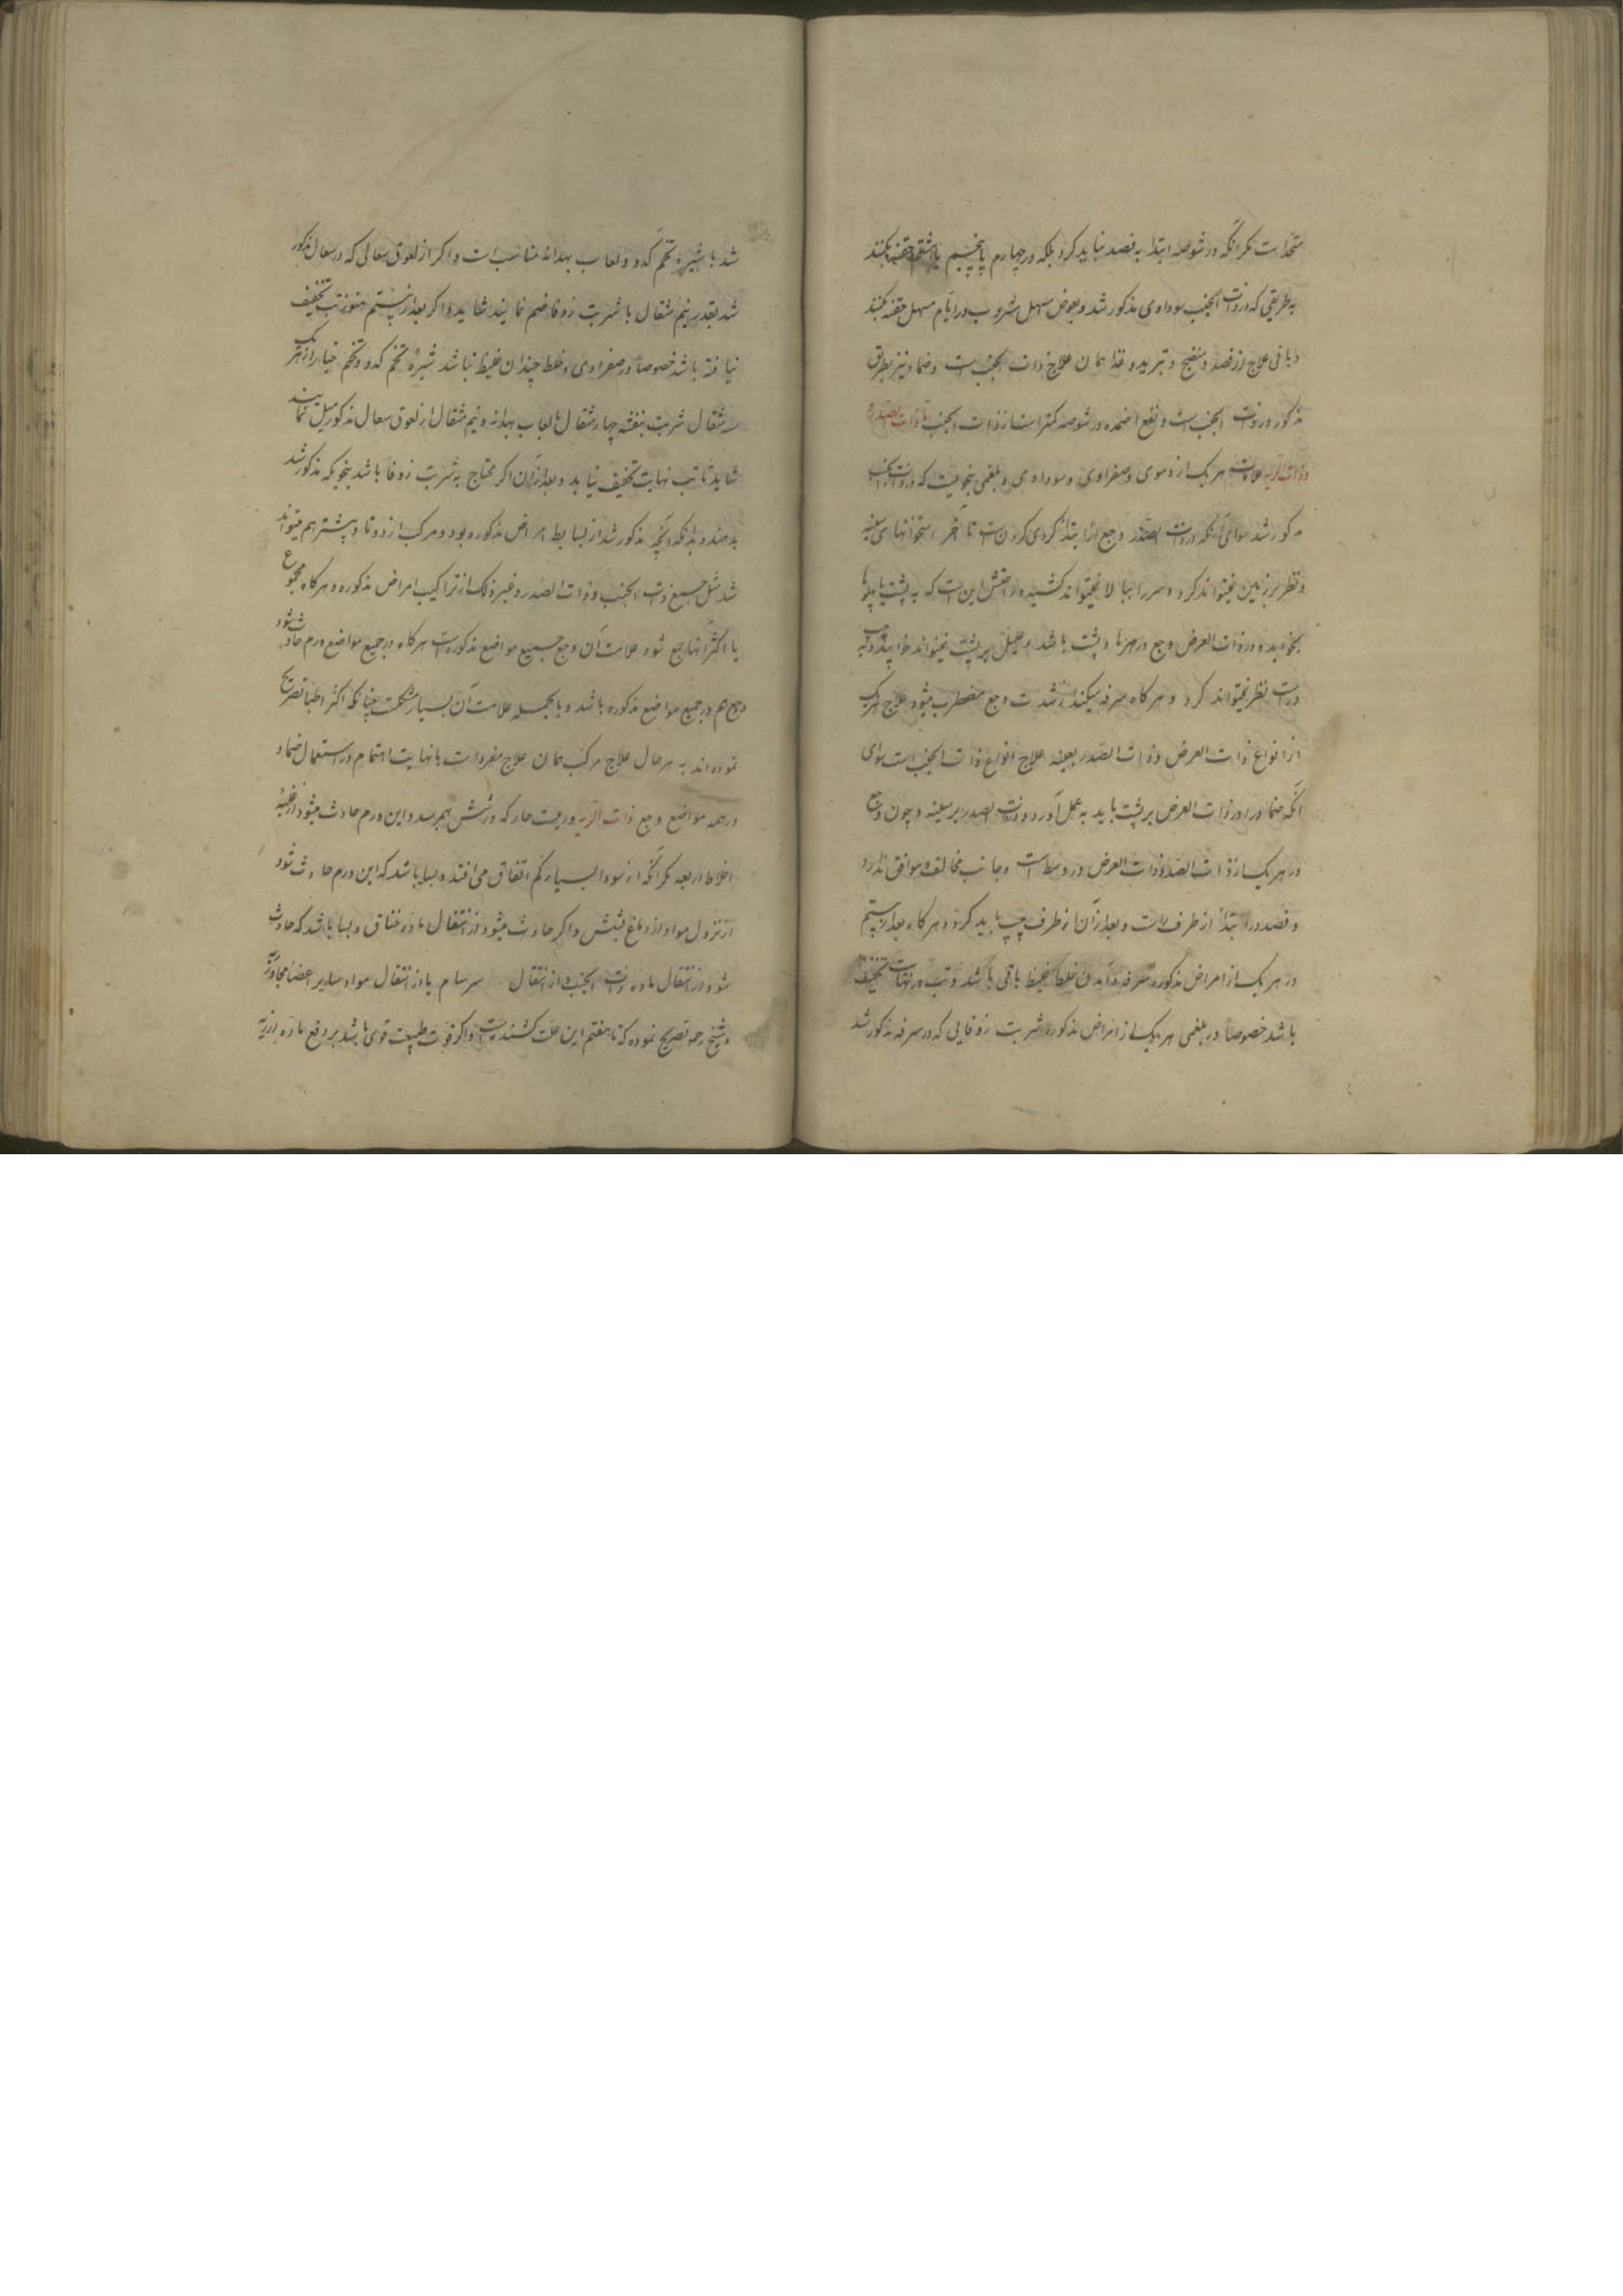 متحد است مگر آنکه در شوصه ابتدا به فصد نباید کرد بلکه در چهارم یا پنجم یا ششم حقنه بکنند
به طریقی که در ذات الجنب سوداوی مذکور شد و بعوض مسهل مشروب در ایام مسهل حقنه بکنند
و باقی علاج از فصد و منضج و تبرید و غذا همان علاج ذات الجنب است و ضماد نیز بطریق
مذکور در ذات الجنب است و نفع اضمده در شوصه کمتر است از ذات الجنب اما ذات الصدر
و ذات العرض علامات هر یک از دموی و صفراوی و سوداوی و بلغمی بنحویست که در ذات الجنب
مذکور شد سوای آنکه در ذات الصدر وجع از ابتدای گردن است تا آخر استخوانهای سینه
و نظر بر زمین نمیتواند کرد و سر را ببالا نمیتواند کشید و راحتش این است که به پشت یا پهلوها
بخوابد و در ذات العرض وجع در مهرها و پشت باشد و علیل بر پشت نمیتواند خوابید و به چپ
و راست نظر نمیتواند کرد و هر گاه سرفه میکند از شدت وجع مضطرب میشود علاج هر یک
از انواع ذات العرض و ذات الصدر بعینه علاج انواع ذات الجنب است سوای
آنکه ضماد را در ذات العرض بر پشت باید به عمل آورد و در ذات الصدر بر سینه و چون وجع
در هر یک از ذات الصدر و ذات العرض در وسط است و جانب مخالف و موافق ندارد
و فصد در ابتدا از طرف راست و بعد از آن از طرف چپ باید کرد و هر گاه بعد از بیستم
در هر یک از امراض مذکوره سرفه و آمدن خلط غلیظ باقی باشد و تب در نهایت تخفیف
باشد خصوصاً در بلغمی هر یک از امراض مذکوره شربت زوفایی که در سرفه مذکور شد
شد با شیره تخم کدو و لعاب بهدانه مناسب است و اگر از لعوق سعالی که در سعال مذکور
شد بقدر نیم مثقال با شربت زوفا ضم نمایند شاید و اگر بعد از بیستم هنوز تب تخفیف
نیافته باشد خصوصاً در صفراوی و خلط چندان غلیظ نباشد شیره تخم کدو و تخم خیار از هر یک
مثقال شربت بنفشه چهار مثقال با لعاب بهدانه و نیم مثقال از لعوق سعال مذکور میل نمایند
شاید تا تب نهایت تخفیف نیابد و بعد از آن اگر محتاج به شربت زوفا باشد بنحویکه مذکور شد
بدهند و بدانکه آنچه مذکور شد از بسایط امراض مذکوره بود و مرکب از دو تا و بیشتر هم میتواند
شد مثل جمیع ذات الجنب و ذات الصدر و غیر ذلک از تراکیب امراض مذکوره و هر گاه مجموع
یا اکثر آنها جمع شود علامت آن وجع جمیع مواضع مذکورست هر گاه در جمیع مواضع ورم حادث شود
وجع هم در جمیع مواضع مذکوره باشد و بالجمله علامت آن بسیار مشکلست چنانکه اکثر اطبا تصریح
نموده اند به هر حال علاج مرکب همان علاج مفردات با نهایت اهتمام در استعمال ضماد
در همه مواضع وجع ذات الریه ورمیست حار که در شش بهم رسد و این ورم حادث میشود از غلبه
اخلاط اربعه مگر آنکه از سودا بسیار کم اتفاق می افتد و بسا باشد که این ورم حادث شود
از نزول مواد از دماغ بشش و اکثر حادث میشود از انتقال ماده خناق و بسا باشد که حادث
شود از انتقال ماده ذات الجنب و از انتقال سرسام یا از انتقال مواد سایر اعضا مجاوره
و شیخ رحمه تصریح نموده که تا هفتم این علت کشنده است و اگر قوت طبیعت قوی باشد بر دفع ماده از ریه